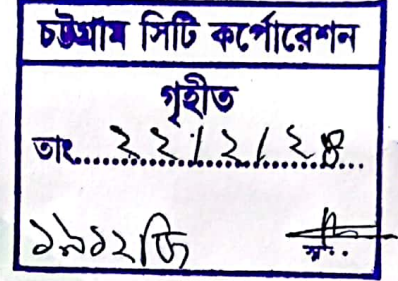 চট্টগ্রাম সিটি কর্পোরেশন
গৃহীত
তাং....২২/২/২৪...
১৯১২জি
স্বা:..